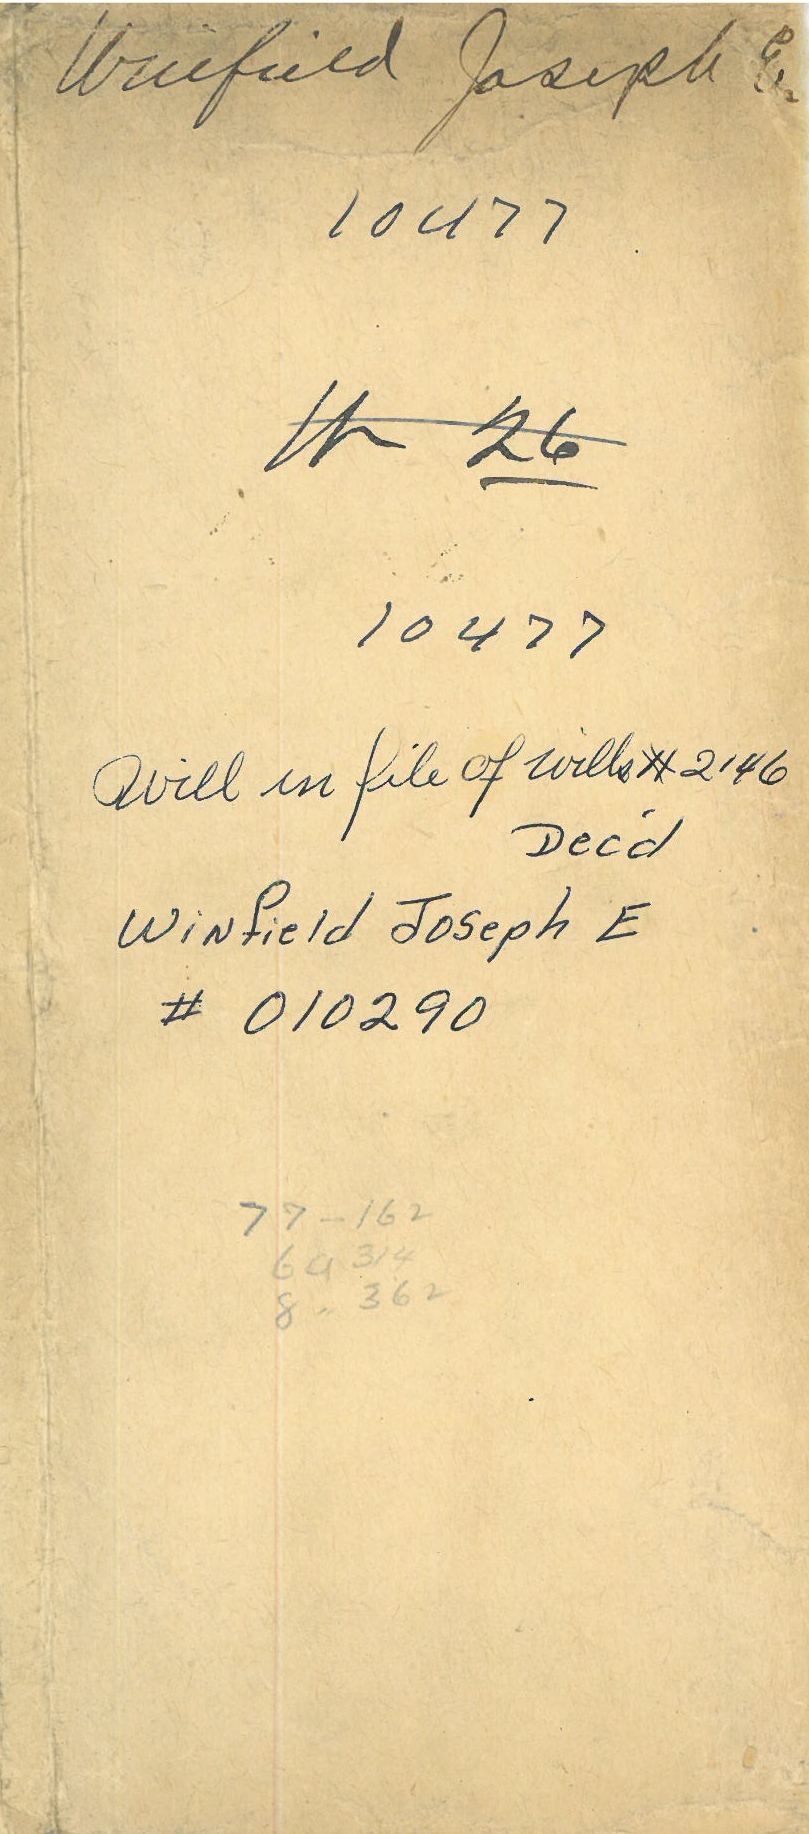 Winfield Joseph E.
10477
26
10477
Will in file of wills # 2146
Dec'd
Winfield Joseph E
# 010290
77-162
6a 314
8 " 362